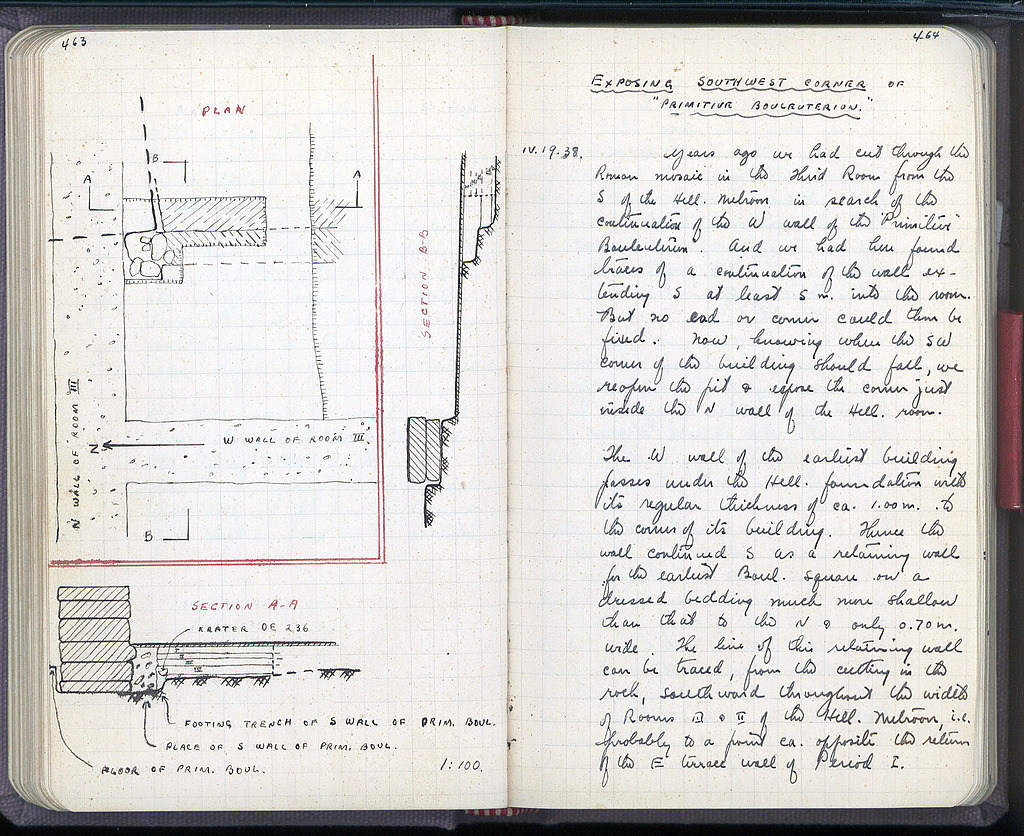 463
PLAN
B
A
A
N WALL OF ROOM III
N
W WALL OF ROOM III
B
SECTION B-B
SECTION A-A
KRATER OE 236
I
II
III
IV
FOOTING TRENCH OF S WALL OF PRIM. BOUL.
PLACE OF S WALL OF PRIM. BOUL.
FLOOR OF PRIM. BOUL.
1:100.
464
EXPOSING SOUTHWEST CORNER OF
"PRIMITIVE BOULEUTERION."
IV.19.38.
Years ago we had cut through the
Roman mosaic in the Third Room from the
S of the Hell. Metroon in search of the
continuation of the W wall of the "Primitive
Bouleuterion. And we had here found
traces of a continuation of the wall ex-
tending S at least 5 m. into the room.
But no end or corner could then be
fixed. Now, knowing where the SW
corner of the building should fall, we
reopen the pit & expose the corner just
inside the N wall of the Hell. room.
The W wall of the earliest building
passes under the Hell. foundation with
its regular thickness of ca. 1.00 m. to
the corner of its building. Hence the
wall continued S as a retaining wall
for the earliest Boul. square on a
dressed bedding much more shallow
than that to the N & only 0.70 m.
wide. The line of this retaining wall
can be traced, from the cutting in the
rock, southward throughout the width
of Rooms III & II of the Hell. Metroon, i.e.
probably to a point ca. opposite the return
of the E terrace wall of Period I.